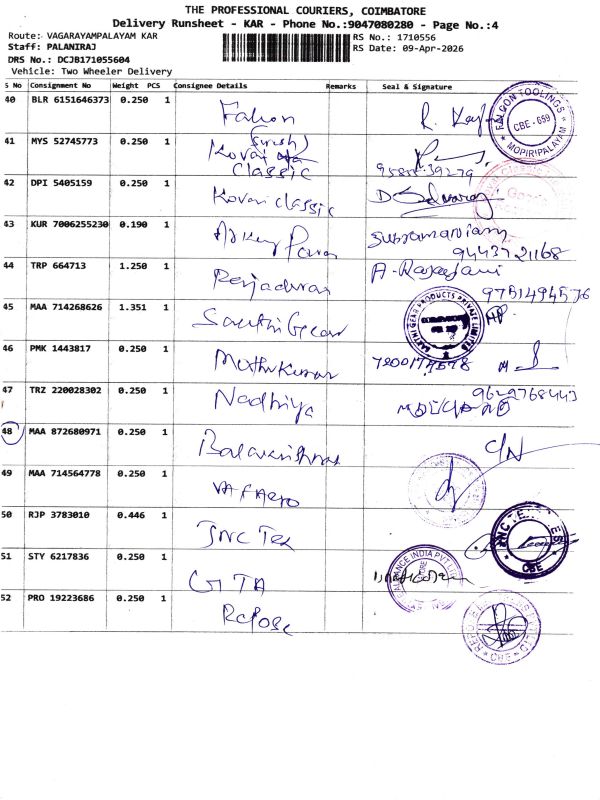 THE PROFESSIONAL COURIERS, COIMBATORE
Delivery Runsheet - KAR - Phone No.:9047080280 - Page No.:4
Route: VAGARAYAMPALAYAM KAR RS No.: 1710556
Staff: PALANIRAJ RS Date: 09-Apr-2026
DRS No.: DCJB171055604
Vehicle: Two Wheeler Delivery
S No Consignment No Weight PCS Consignee Details Remarks Seal & Signature
40 BLR 6151646373 0.250 1 Falcon FALCON TOOLINGS CBE-659 MOPIRIPALAYAM
41 MYS 52745773 0.250 1 Kovai Classic
42 DPI 5405159 0.250 1 Kovai classic
43 KUR 7006255230 0.190 1 Subramaniam
9443721168
44 TRP 664713 1.250 1 A-Rajeejani
9751494576
45 MAA 714268626 1.351 1 Sakthi Gear SAKTHI GEAR PRODUCTS PRIVATE LIMITED
46 PMK 1443817 0.250 1 Muthukumar
47 TRZ 220028302 0.250 1 Nadhiya 9629768443
48 MAA 872680971 0.250 1 Balakrishnan C/N
49 MAA 714564778 0.250 1
50 RJP 3783010 0.446 1 JNC Tex CBE
51 STY 6217836 0.250 1 GTA
52 PRO 19223686 0.250 1 Repose CBE